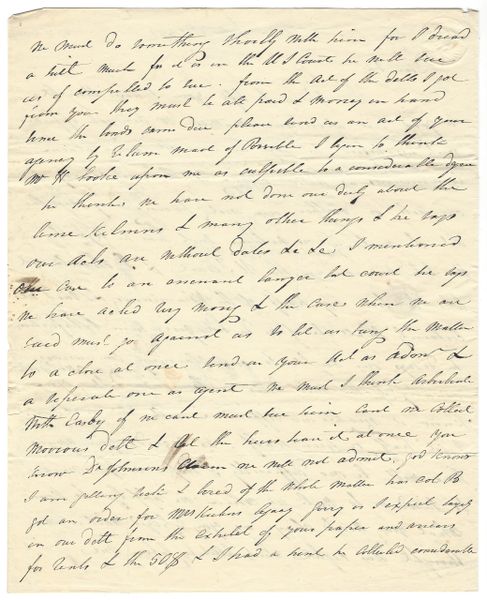 We must do something shortly with him for I dread
a suit much for it is in the U S Court he will sue
us if compelled to sue. from the Act of the debts I got
from you they must be all paid & money in hand
since the bonds came due please send us an act of your
agency by return mail if Possible I begin to think
Mr H looks upon me as culpable to a considerable degree
he thinks we have not done our duly about the
& many other things & he says
our Acts are without dates &c &c. I mentioned
our case to an eminent lawyer last court he says
we have acted very wrong & the case when we are
sued must go against us so let us bring the matter
to a close at once send on your Act as admr &
a seperate one as agent we must I think arbitrate
With Easby if we cant must sue him cant we collect
debt & let the heirs have it at once you
know Dr Johnsons Claim we will not admit. god knows
I am getting sick & tired of the whole matter has Col B
got an order for legacy
in our debt from the exhibit of your paper and
for rents & the 50$ & I had a he collected considerable